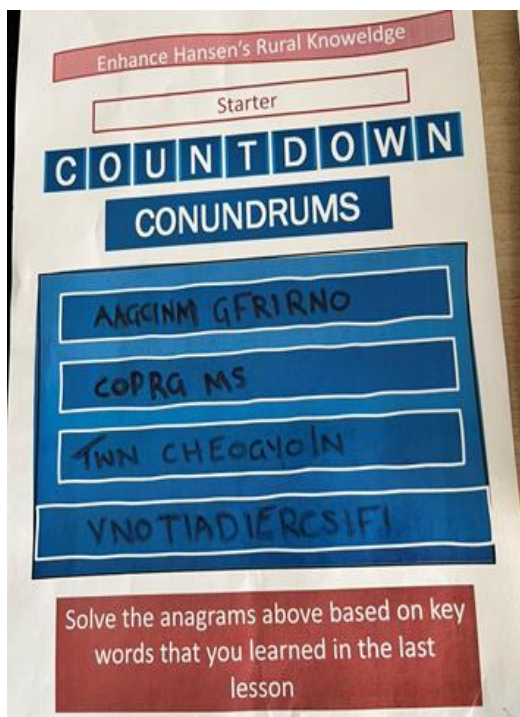 Enhance Hansen's Rural Knoweldge
Starter
COUNTDOWN
CONUNDRUMS
AAGCINM GFRIRNO
COPRG MS
TWN CHEOGYOLN
VNOTIADIERCSIFI
Solve the anagrams above based on key
words that you learned in the last
lesson